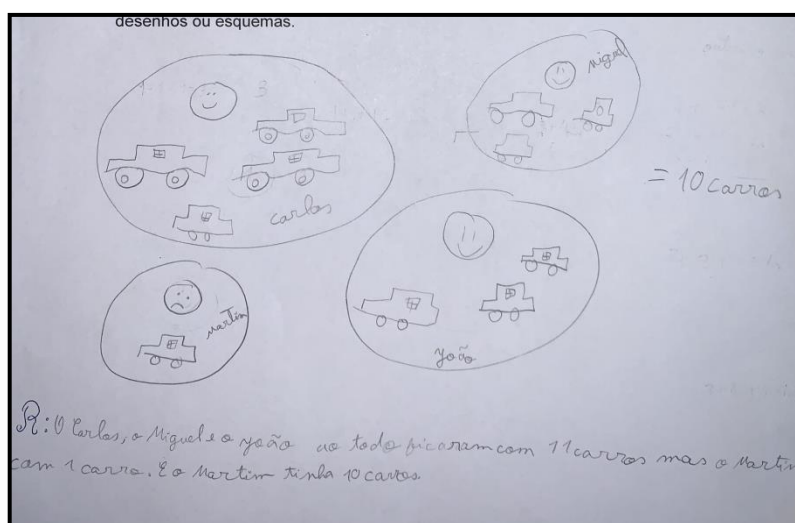 desenhos ou esquemas.
Miguel
= 10 carros
carlos
Martim
João
R: O Carlos, o Miguel e o João ao todo ficaram com 11 carros mas o Martim
com 1 carro. E o Martim tinha 10 carros.